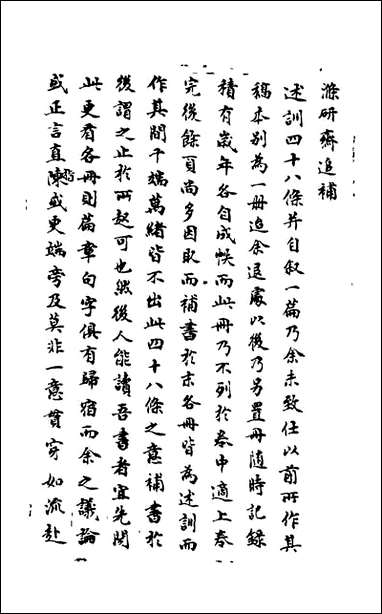 滌研齋追補
述訓四十八條并自叙一篇乃余未致仕以前所作其
稿本别為一册追余退處以後乃另置册隨時記錄
積有歲年各自成帙而此册乃不列於卷中適上卷
完後餘頁尚多因取而補書於末各册皆為述訓而
作其間千端萬緒皆不出此四十八條之意補書於
後謂之止於所起可也然後人能讀吾書者宜先閱
此更看各册則篇章句字俱有歸宿而余之議論
或正言直陳或更端旁及莫非一意貫穿如流赴